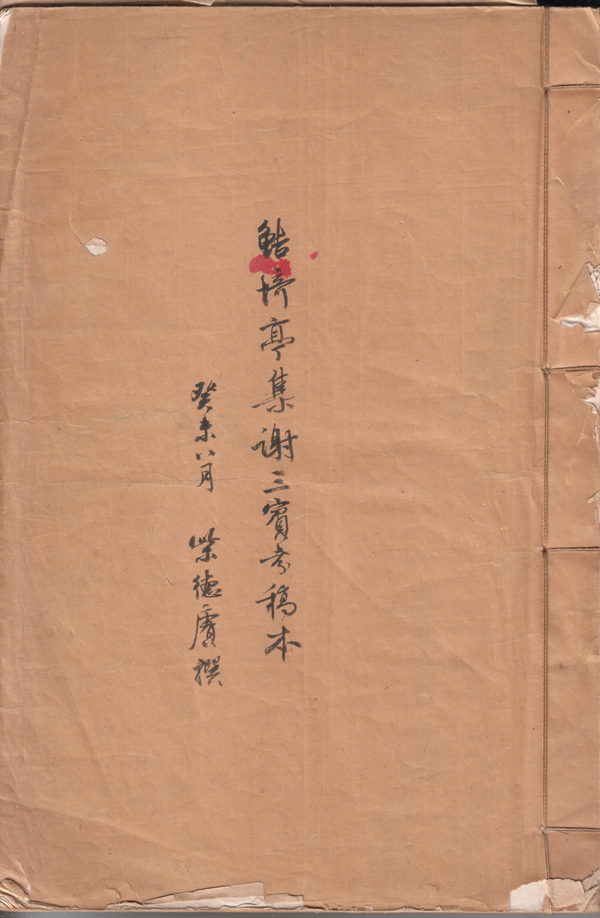 鲒埼亭集谢三賓考稿本
癸未八月 柴德賡撰